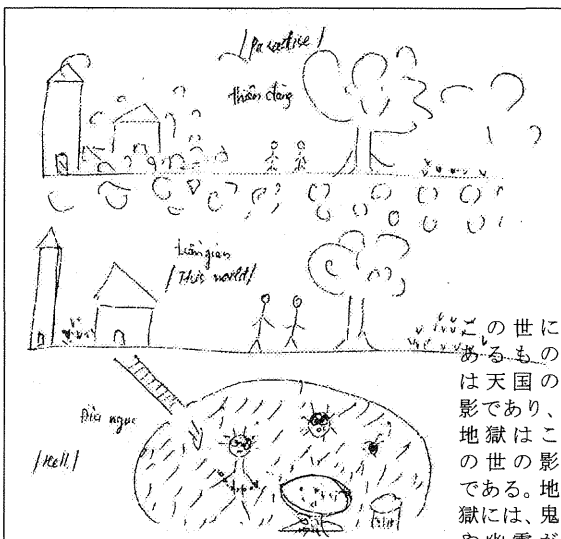 /Paradise/
thiên đàng
trần gian
/This world/
Địa ngục
/Hell/
この世に
あるもの
は天国の
影であり、
地獄はこ
の世の影
である。地
獄には、鬼